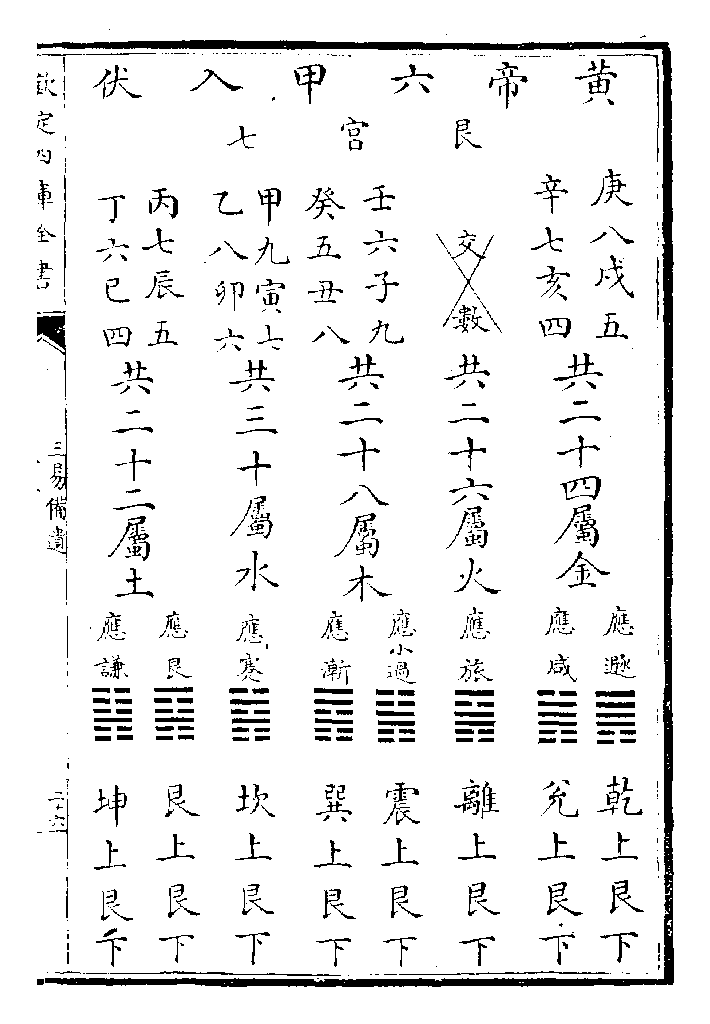 黄帝六甲入伏
艮宮七
庚八戌五
辛七亥四
共二十四屬金
應遯
應咸
乾上艮下
兌上艮下
交數
共二十六屬火
應旅
離上艮下
壬六子九
癸五丑八
共二十八屬木
應小過
應漸
震上艮下
巽上艮下
甲九寅七
乙八卯六
共三十屬水
應蹇
坎上艮下
丙七辰五
丁六巳四
共二十二屬土
應艮
應謙
艮上艮下
坤上艮下
欽定四庫全書
三易備遺